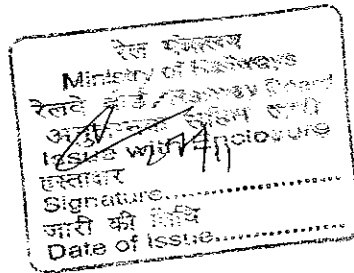 रेल मंत्रालय
Ministry of Railways
रेलवे बोर्ड / Railway Board
सहित जारी
Issue with Enclosure
हस्ताक्षर
Signature..................
जारी की तिथि
Date of Issue..................